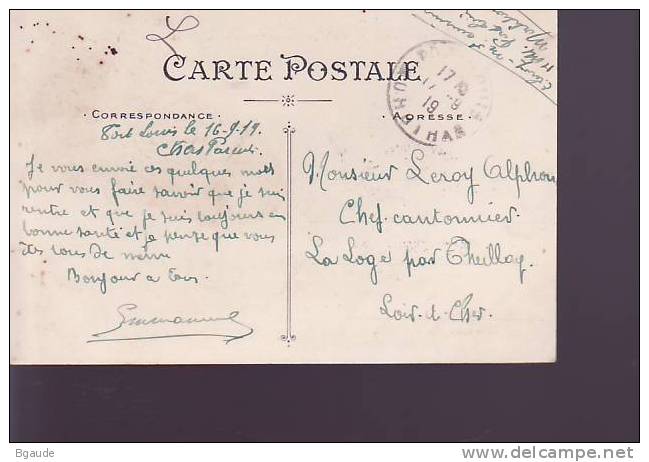 CARTE POSTALE
CORRESPONDANCE
ADRESSE
Port Louis le 16-9-19
Chers Parents.
Je vous envoie ces quelques mots
pour vous faire savoir que je suis
rentré et que je suis toujours en
bonne santé et je pense que vous
êtes tous de même
Bonjour a tous.
Emmanuel
Monsieur Leroy Alphonse
Chef cantonnier
La Loge par Theillay.
Loir-et-Cher.
PORT LOUIS
17 -9
19
MORBIHAN
Bgaude
delcampe.net